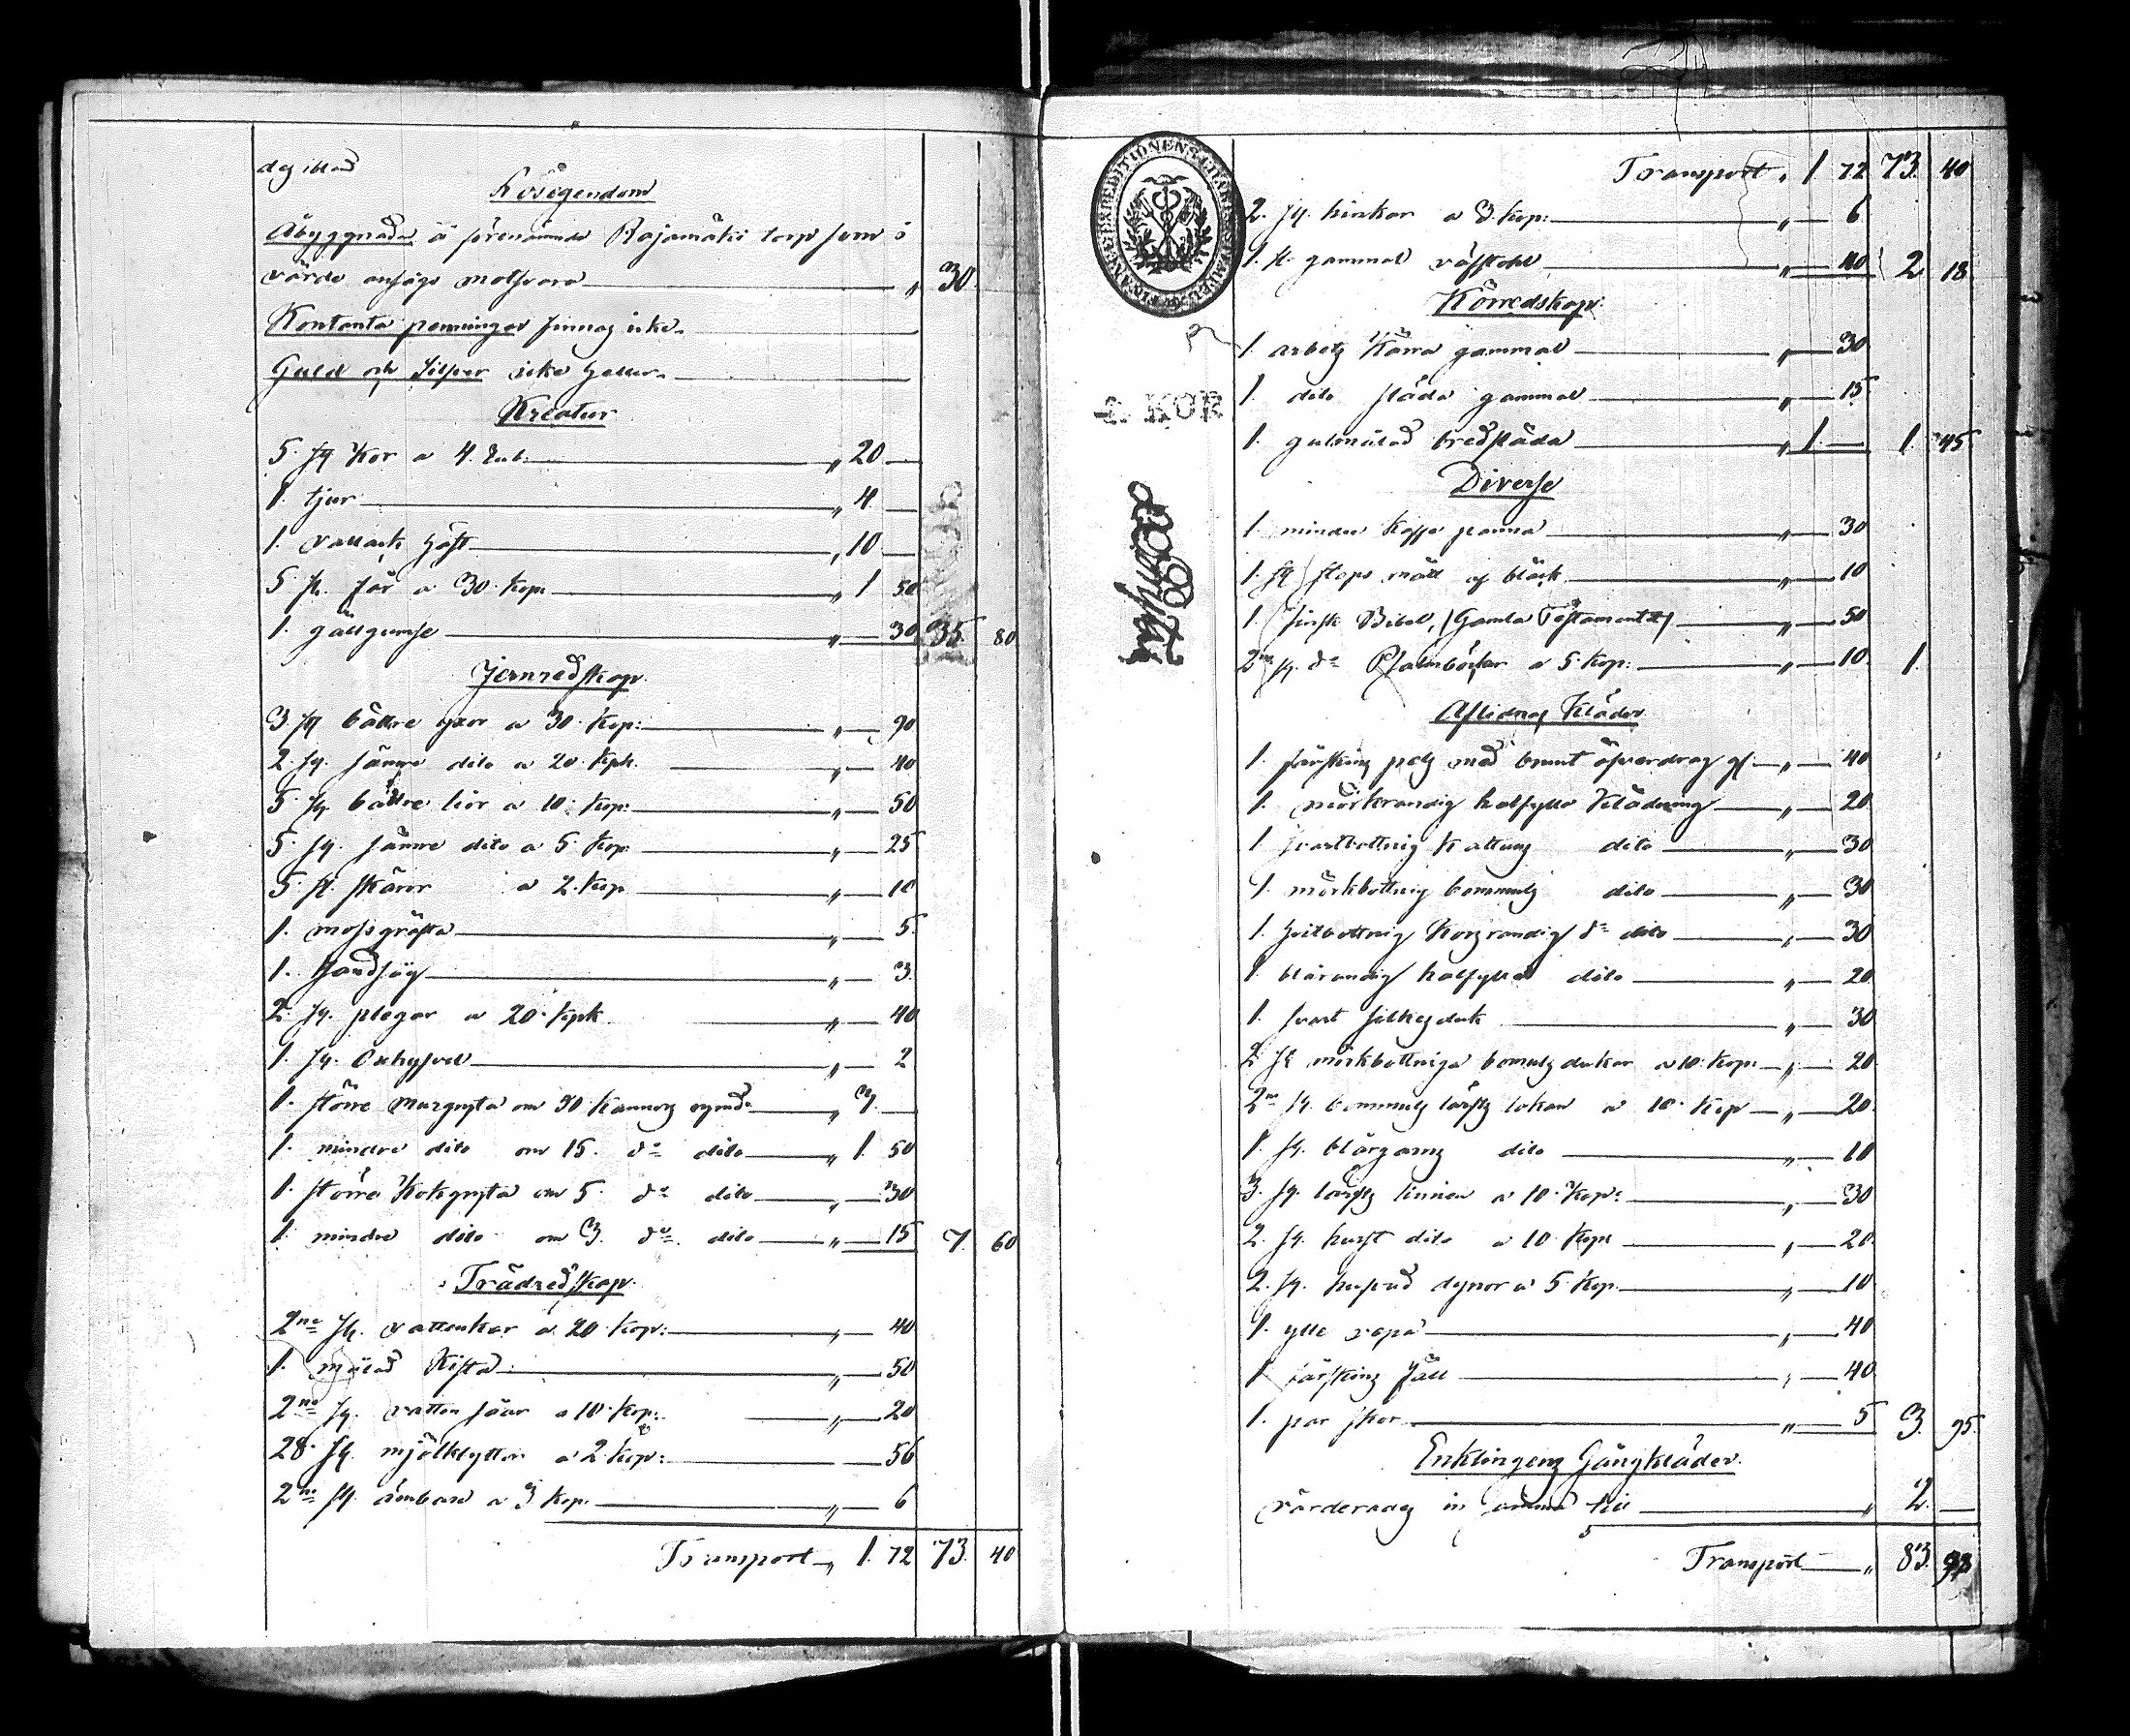 Lösegendom
Åbyggnader å förenämnde Rajamäki torp som i
värde ansågs motsvara " 30
Kontanta penningar finnas icke.
Guld och Silfver icke heller.
Kreatur
5. st Kor a 4. Rub. " 20 —
1. tjur " 4. —
1. vallack häst " 10 —
5. st. får a 30. Kop. " 1 50
1. gällgumse " — 30 35. 80
Jernredskap.
3 st bättre yxor a 30. Kop: " — 90
2. st. sämre dito a 20. Kpk. " — 40
5. st. bättre liar a 10. Kop: " — 50
5. st. sämre dito a 5. Kop. " — 25
5. st. skäror a 2. Kop " — 10
1. mossgräfta " — 5.
1. handsåg " — 3.
2. st. plogar a 20. Kpk. " — 40
1. st. Oxhyfvel " — 2
1. större murgryta om 30. kannors rymd " 3. —
1. mindre dito om 15. do dito " 1. 50
1. större Kokgryta om 5. do dito " — 30
1. mindre dito om 3. do dito " — 15 7. 60
Trädredskap.
2ne st. vattenkar a 20. Kop: " — 40
1. målad Kista " — 50
2ne st. vatten såar a 10. Kop: " — 20
28. st. mjölkbyttor a 2. Kop: — 56
2ne st. ämbare a 3 Kop. " — 6
Transport " 1. 72 73. 40
Transport " 1 72 73. 40
2. st. hinkar a 3. Kop: " — 6
1. st. gammal väfstohl " — 40 2 18
Körredskap.
1. arbets Kärra gammal " — 30
1. dito släda gammal " — 15
1. gulmålad bredsläda " 1. — 1. 45
Diverse
1. mindre Kaffe panna " — 30
1. st stops mått af bläck " — 10
1. finsk Bibel, (Gamla Testamentet) " — 50
2ne st. do Psalmböcker a 5. Kop: " — 10 1.
Aflidnas Kläder
1. fårskins pels med brunt öfverdrag gl. " — 40
1. mörkrandig halfylle Klädning " — 20
1 svartbottnig Kattuns dito " — 30
1. mörkbottnig bommuls dito " — 30
1. hvitbottnig Korsrandig do dito " — 30
1. blårandig halfylle dito " — 20
1. svart silkesduk " — 30
2 st mörkbottniga bomuls dukar a 10. Kop. " — 20
2ne st. bommuls lärfts lakan a 10. Kop " — 20
1. st. blårgarns dito " — 10
3. st. lärfts linnen a 10. Kop: " — 30
2. st. dito a 10 Kopk " — 20
2. st. hufvud dynor a 5. Kop. " — 10
1. ylle vepa " — 40
1 fårskins fäll " — 40
1. par skor " — 5 3. 95.
Enklingens Gångkläder.
värderades in summa till " 2. —
Transport " 83. 98
4. KOP